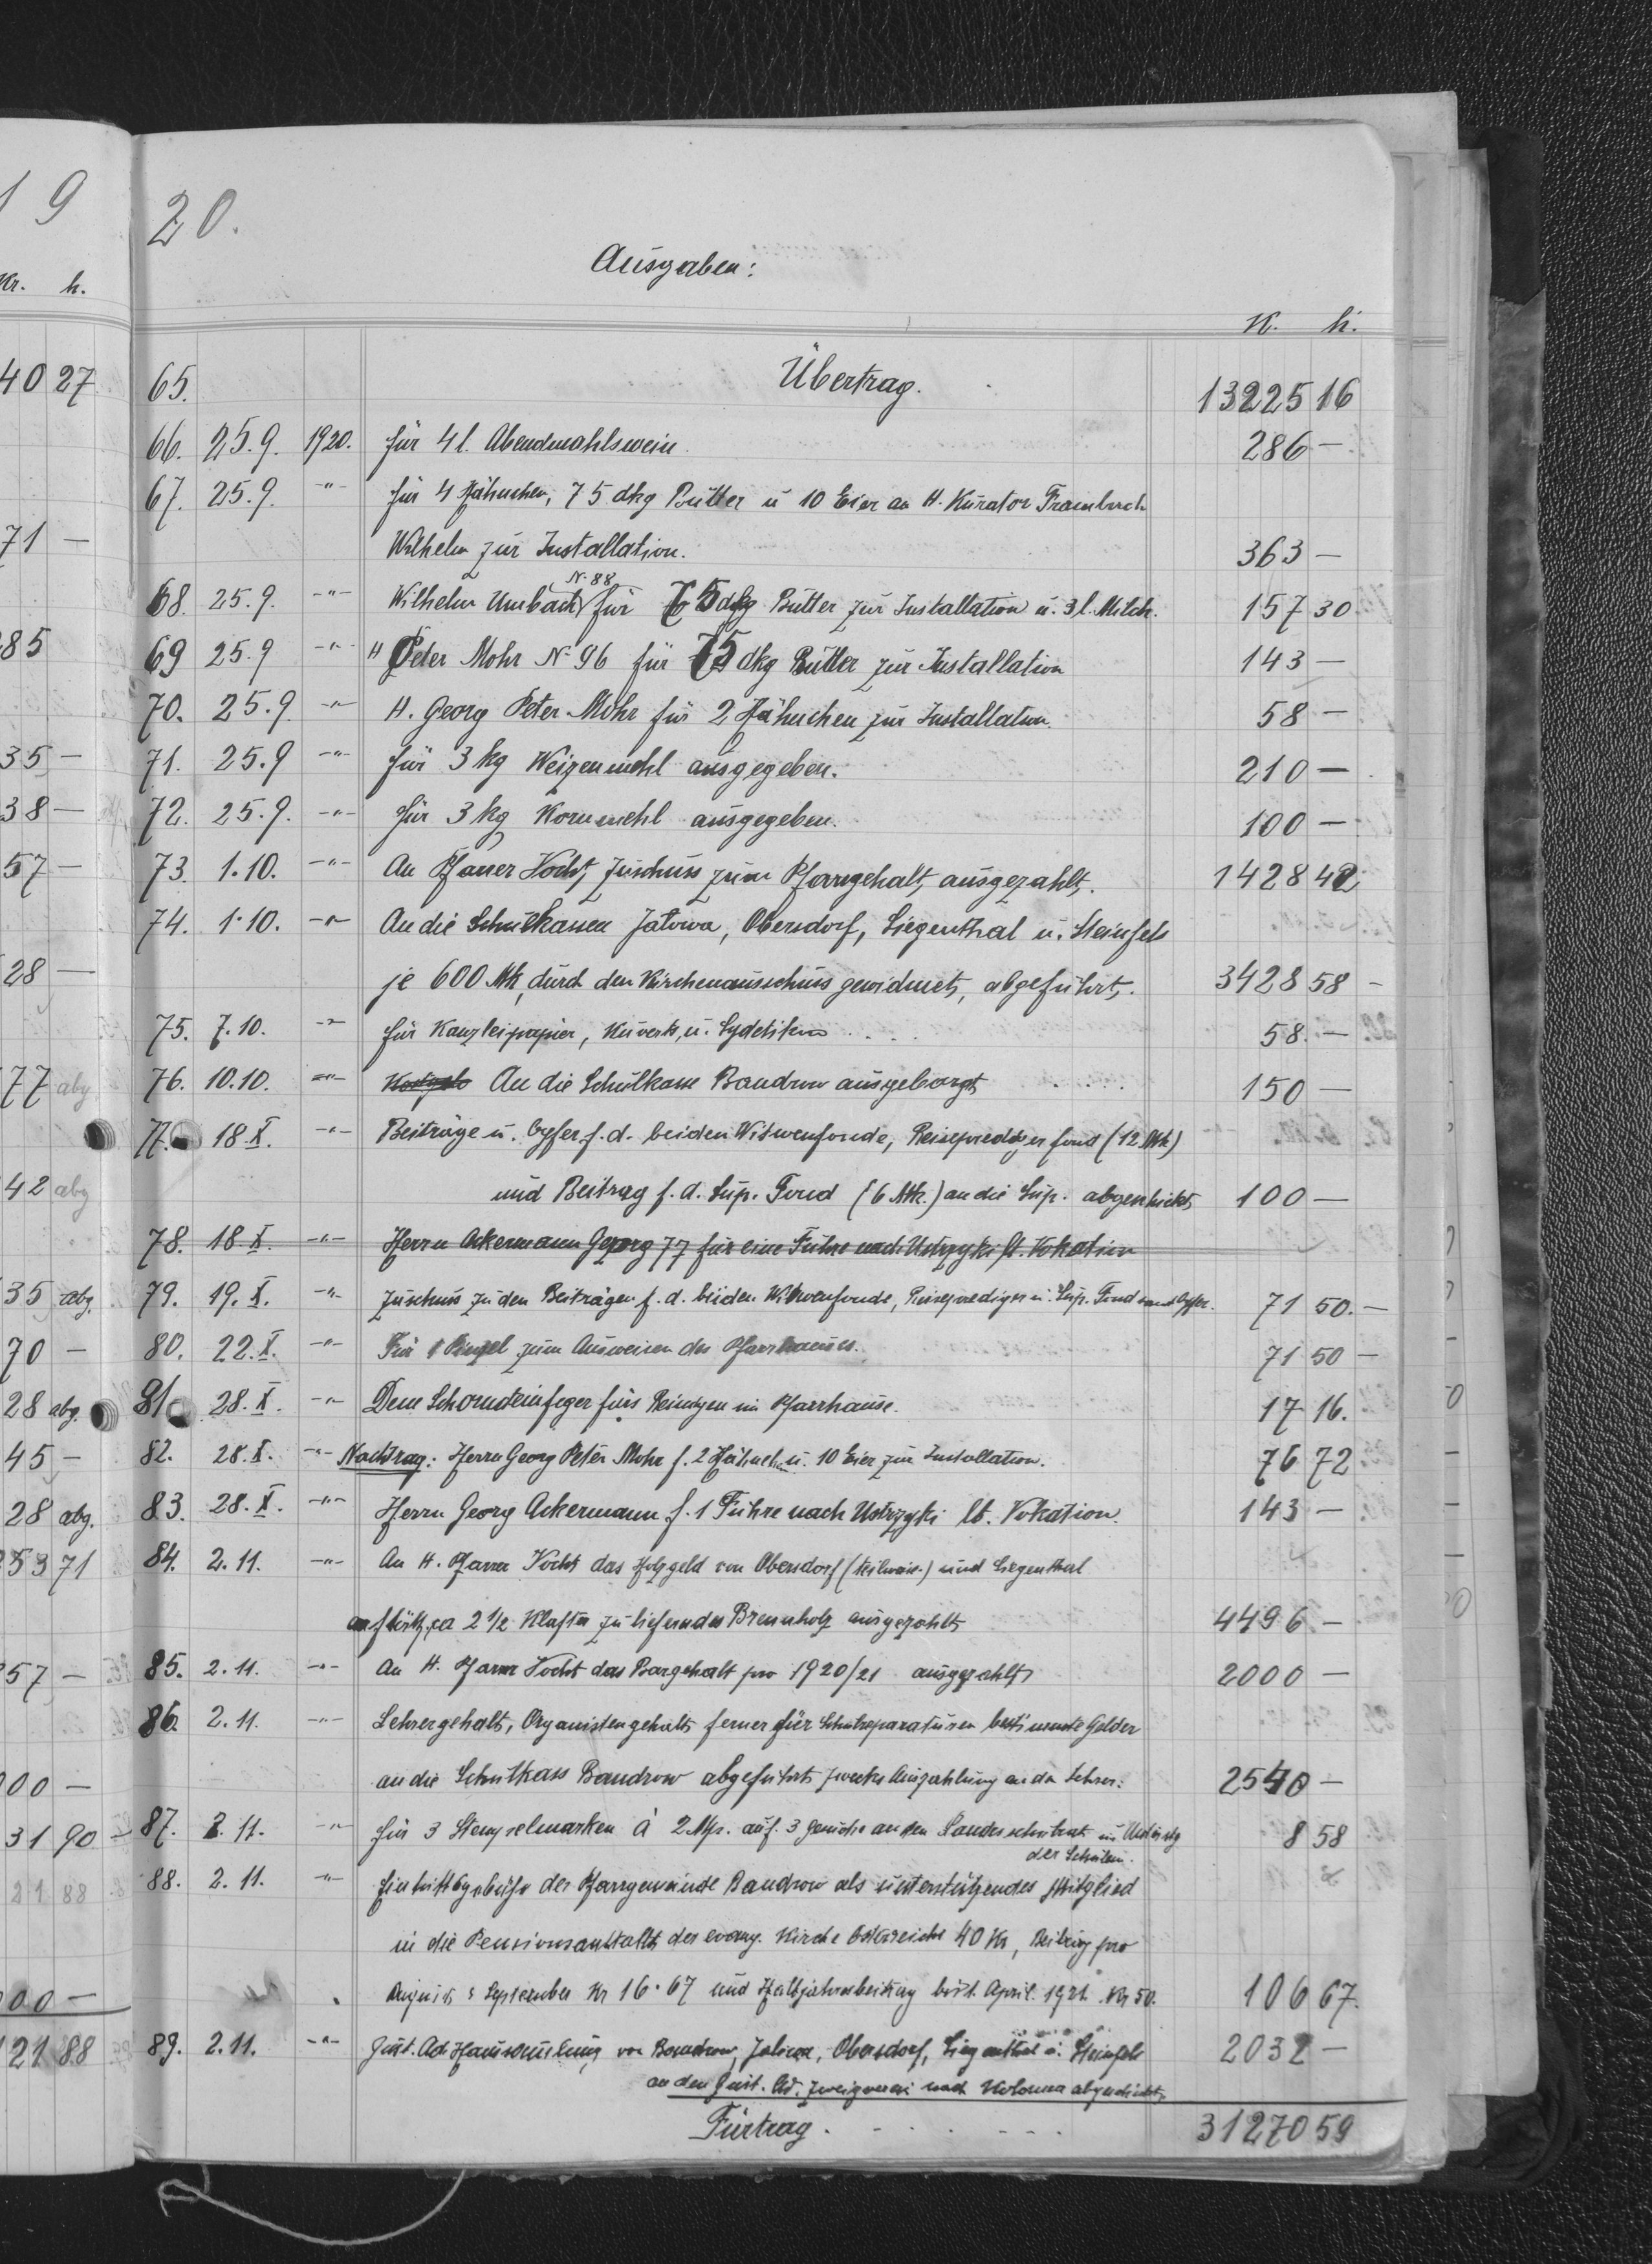 19
Kr. h.
40 27
71 —
85
35 —
38 —
57 —
28 —
77 abg
42 abg
35 abg.
70 —
28 abg.
45 —
28 abg.
53 71
57 —
00 —
31 90 —
21 88
00 —
121 88
20.
Ausgaben:
K. h.
65. Übertrag. 13225 16
66. 25.9. 1920. für 4 l. Abendmahlswein 286 —
67. 25.9. -"- für 4 Hähnchen, 75 dkg Butter u 10 Eier an H. Kurator Frambach
Wilhelm zur Installation. 363 —
N. 88
68. 25.9. -"- Wilhelm Umbach für 75 dkg Butter zur Installation u. 3 l. Milch. 157 30
69 25.9 -"- H Peter Mohr N. 96 für 75 dkg Butter zur Installation 143 —
70. 25.9. -"- H. Georg Peter Mohr für 2 Hähnchen zur Installation. 58 —
71. 25.9 -"- für 3 kg Weizenmehl ausgegeben. 210 —
72. 25.9. -"- für 3 kg Kornmehl ausgegeben. 100 —
73. 1.10. -"- An Pfarrer Vocht, Zuschuss zum Pfarrgehalt, ausgezahlt. 1428 42
74. 1.10. -"- An die Schulkassen Jalowa, Obersdorf, Siegenthal u. Steinfels
je 600 Mk, durch den Kirchenausschuss gewidmet, abgeführt. 3428 58 -
75. 7.10. -"- für Kanzleipapier, Kuverts, u. Syndetikon . . . . 58. —
76. 10.10. -"- An die Schulkasse Bandrow ausgeborgt . . . . 150 —
77. 18.X. -"- Beiträge u. Opfer f. d. beiden Witwenfonde, Reisepredigerfond (12 Mk)
und Beitrag f. d. Sup. Fond (6 Mk.) an die Sup. abgeschickt 100 —
78. 18.X. -"- Herrn Ackermann Georg 77 für eine Fuhre nach Ustrzyki lt. Vokation
79. 19.X. -"- Zuschuss zu den Beiträgen f. d. beiden Witwenfonde, Reiseprediger u. Sup. Fond samt Opfer. 71 50. —
80. 22.X. -"- Für 1 Pinsel zum Ausweisen des Pfarrhauses. 71 50 —
81 28.X. -"- Dem Schornsteinfeger fürs Reinigen im Pfarrhause. 17 16.
82. 28.X. -"- Nachtrag: Herrn Georg Peter Mohr f. 2 Hähnch. u. 10 Eier zur Installation. 76 72
83. 28.X. -"- Herrn Georg Ackermann f. 1 Fuhre nach Ustrzyki lt. Vokation. 143 —
84. 2.11. -"- An H. Pfarrer Vocht das Holzgeld von Obersdorf (teilweise) und Siegenthal
2 1/2 Klafter zu lieferndes Brennholz ausgezahlt 4496 —
85. 2.11. -"- An H. Pfarrer Vocht das Bargehalt pro 1920/21 ausgezahlt 2000 —
86. 2.11. -"- Lehrergehalt, Organistengehalt ferner für Schulreparaturen bestimmte Gelder
an die Schulkass Bandrow abgeführt zwecks Auszahlung an den Lehrer. 2540 —
87. 2.11. -"- für 3 Stempelmarken à 2 Mk. auf 3 Gesuche an den Landesschulrat um
der Schulen. 8 58
88. 2.11. -"- Eintrittsgebühr der Pfarrgemeinde Bandrow als unterstützendes Mitglied
in die Pensionsanstalt der evang. Kirche Österreichs 40 Kr, Beitrag pro
August & September Kr 16.67 und Halbjahresbeitrag bis 1. April 1921 Kr 50. 106 67.
89. 2.11. -"- Gust. Ad Haussammlung von Bandrow, Jalowa, Obersdorf, Siegenthal u. Steinfels 2032 —
an den Gust. Ad. Zweigverein nach Kolomea abgeschickt.
Fürtrag . - . . . . 31270 59